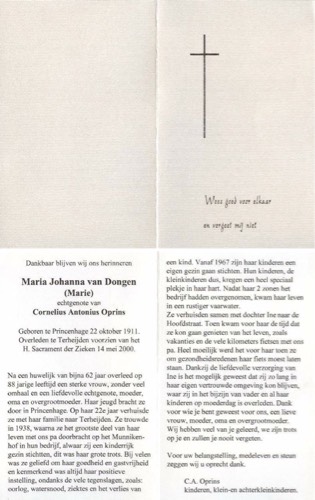 Wees goed voor elkaar
en vergeet mij niet
Dankbaar blijven wij ons herinneren
Maria Johanna van Dongen
(Marie)
echtgenote van
Cornelius Antonius Oprins
Geboren te Princenhage 22 oktober 1911.
Overleden te Terheijden voorzien van het
H. Sacrament der Zieken 14 mei 2000.
Na een huwelijk van bijna 62 jaar overleed op
88 jarige leeftijd een sterke vrouw, zonder veel
omhaal en een liefdevolle echtgenote, moeder,
oma en overgrootmoeder. Haar jeugd bracht ze
door in Princenhage. Op haar 22e jaar verhuisde
ze met haar familie naar Terheijden. Ze trouwde
in 1938, waarna ze het grootste deel van haar
leven met ons pa doorbracht op het Munniken-
hof in hun bedrijf, waar ze een eigen kinderrijk
gezin stichtten, dit was haar grote trots. Bij velen
was ze geliefd om haar goedheid en gastvrijheid
en kenmerkend was altijd haar positieve
instelling, ondanks de vele tegenslagen, zoals:
oorlog, watersnood, ziektes en het verlies van
een kind. Vanaf 1967 zijn haar kinderen een
eigen gezin gaan stichten. Hun kinderen, de
kleinkinderen dus, kregen een heel speciaal
plekje in haar hart. Nadat haar 2 zonen het
bedrijf hadden overgenomen, kwam haar leven
in een rustiger vaarwater.
Ze verhuisden samen met dochter Ine naar de
Hoofdstraat. Toen kwam voor haar de tijd dat
ze kon gaan genieten van het leven, zoals:
vakanties en de vele kilometers fietsen met ons
pa. Heel moeilijk werd het voor haar toen ze
om gezondheidsredenen haar fiets moest laten
staan. Dankzij de liefdevolle verzorging van
Ine is het mogelijk geweest dat zij zo lang in
haar eigen vertrouwde omgeving kon blijven,
waar zij in het bijzijn van vader en al haar
kinderen op moederdag is overleden. Dank
voor wie je bent geweest voor ons, een lieve
vrouw, moeder, oma en overgrootmoeder.
Wij hebben veel van je geleerd, we zijn trots
op je en zullen je nooit vergeten.
Voor uw belangstelling, medeleven en steun
zeggen wij u oprecht dank.
C.A. Oprins
kinderen, klein-en achterkleinkinderen.